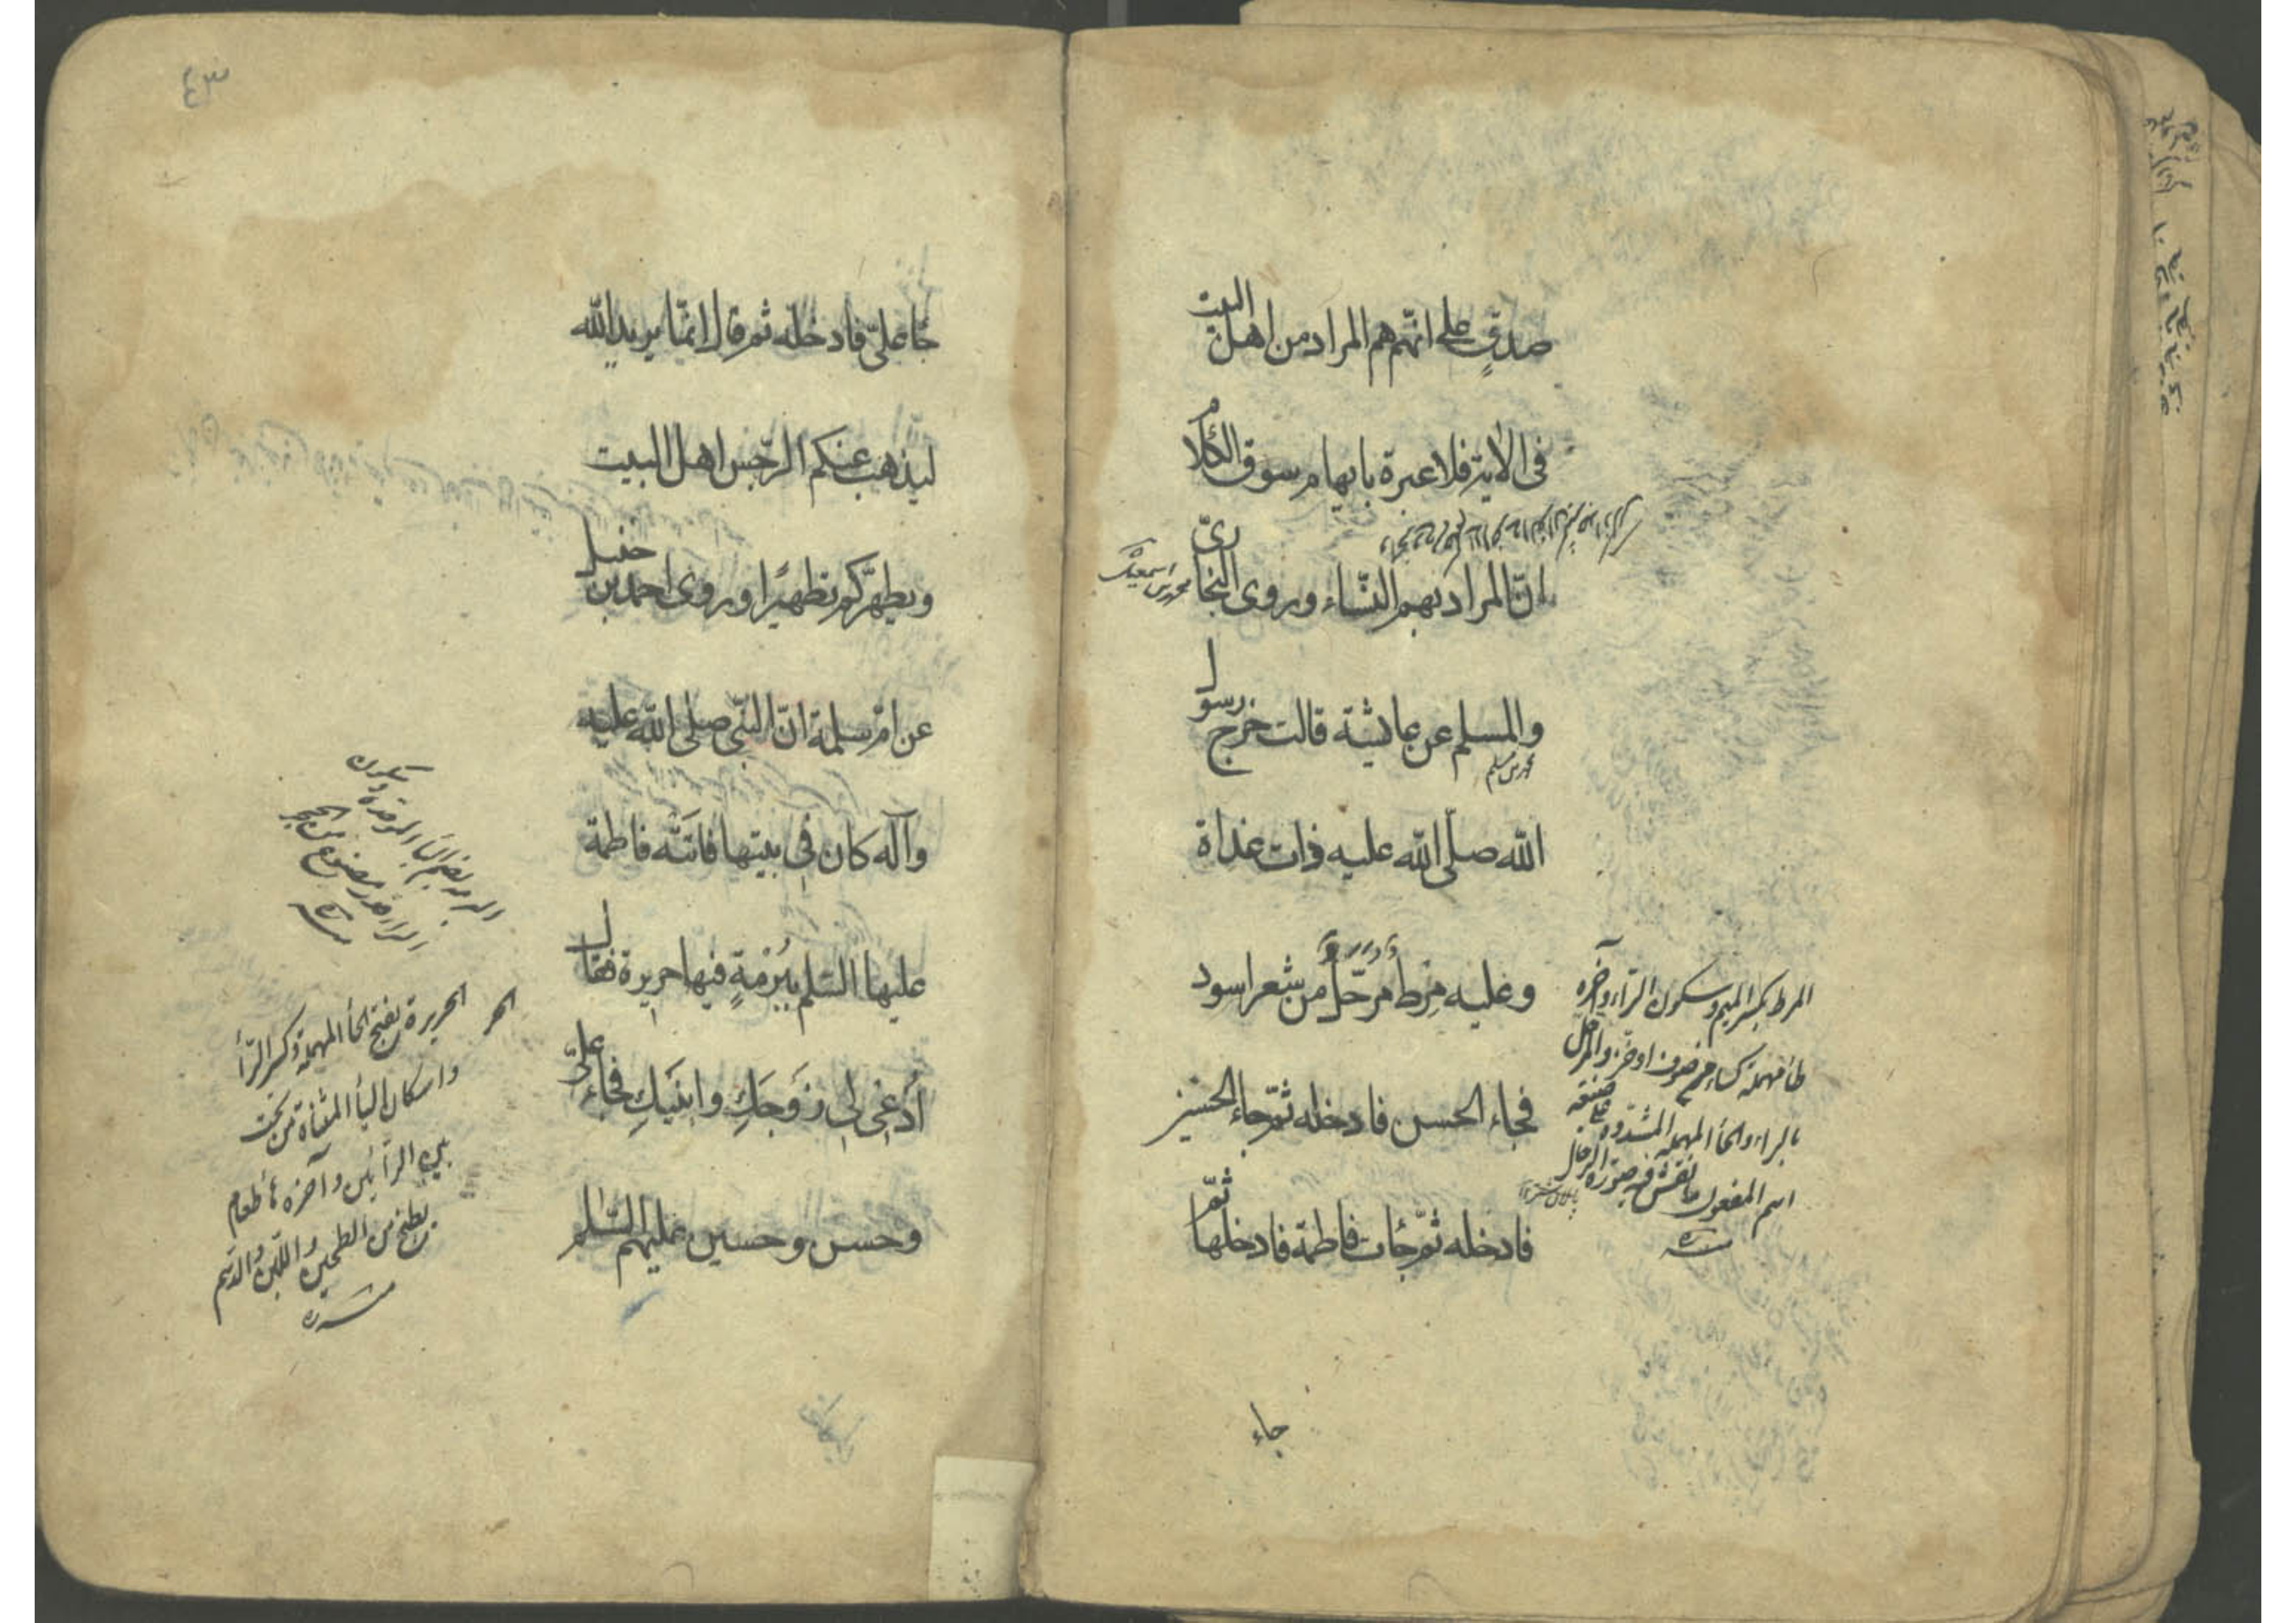 صدقٍ على انّهم هم المراد من اهل البيت
فى الاية فلا عبرة بابهام سوق الكلام
انّ المراد بهم النّساء وروى البخارىّ
محمد بن اسمعيل
والمسلم عن عايشة قالت خرج رسول
محمد بن مسلم
الله صلّى الله عليه ذات غداة
وعليه مِرط مرحّل من شعر اسود
فجاء الحسن فادخله ثمّ جاء الحسين
فادخله ثمّ جات فاطمة فادخلها ثمّ
المرط بكسر الميم وسكون الراء وآخره
طاء مهملة كساء من صوف او خز والمرحل
بالراء والحاء المهملة المشددة على صيغة
اسم المفعول ما نقش فيه صورة الرحال
جاء
٤٣
جا علىّ فادخله ثم قال انّما يريد الله
ليذهب عنكم الرّجس اهل البيت
ويطهّركم تطهيرًا وروى احمد بن حنبل
عن امّ سلمة انّ النبّى صلى الله عليه
وآله كان فى بيتها فاتَتْه فاطمة
عليها السّلم بِبُرْمةٍ فيها حريرة فقال
اُدْعِى لى زَوجَكِ وابنَيكِ فجاء علىّ
وحسن وحسين عليهم السّلم
البرمة بضم الباء الموحدة وسكون
الراء قدر مصنوع من الحجر
الحريرة بفتح الحاء المهملة وكسر الرّاء
واسكان الياء المثناة من تحت
بين الرّائين وآخره هاء طعام
يطبخ من الطحين واللبن والدسم